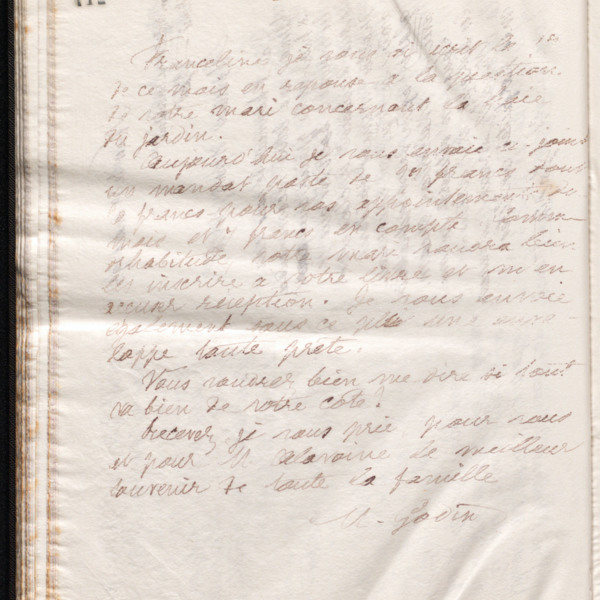 je vous ai écrit le
de ce mois en réponse à la question
de votre mari concernant la haie
du jardin.
Aujourd'hui je vous envoie ci-joint
un mandat poste de francs dont
francs pour vos appointements de
mois et francs en compte. Comme
d'habitude votre mari voudra bien
les inscrire à votre livre et m'en
accuser réception. Je vous envoie
également sous ce pli une enve-
loppe toute prête.
Vous voudrez bien me dire si tout
va bien de votre côté?
Recevez, je vous prie pour vous
et pour M. le meilleur
souvenir de toute la famille
M. Godin